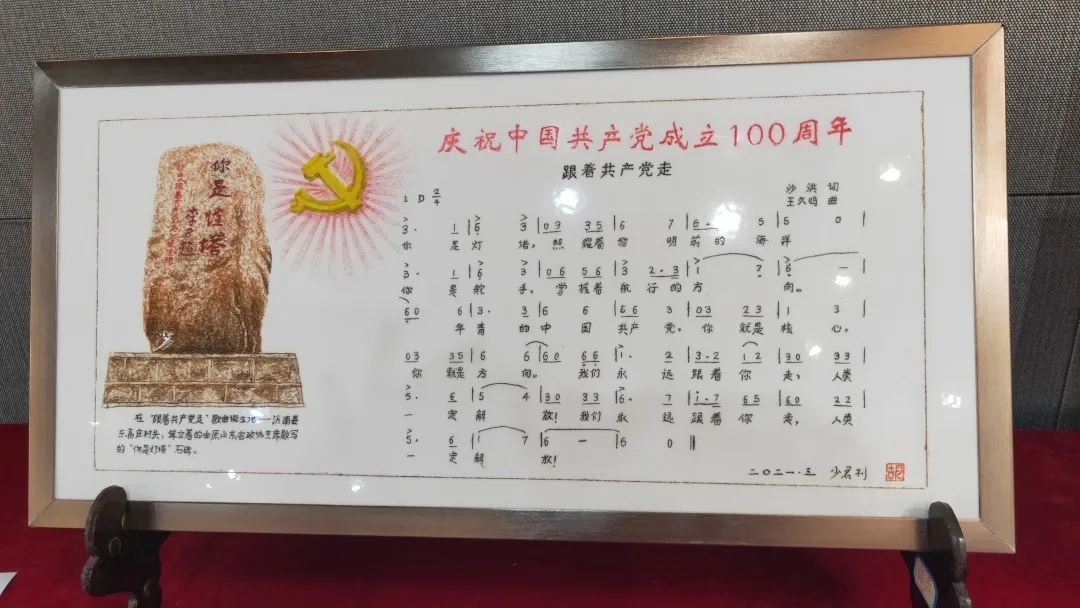 庆祝中国共产党成立100周年
跟着共产党走
沙洪 词
王久鸣 曲
1 D 2/4
你是灯塔
3· 1 | 6 3 | 03 35 | 6 7 | 6· 5 | 5 0 |
你 是灯 塔, 照 耀着 黎 明前 的 海洋
3· 1 | 6 3 | 06 56 | 3 2·3 | 1 7 | 6 — |
你 是舵 手, 掌 握着 航 行的 方 向。
60 6 | 3· 3 | 6 6 | 66 3 | 03 23 | 1 3 |
年青 的中 国 共产 党, 你 就是 核 心,
03 35 | 6 6 | 60 66 | 1· 2 | 3·2 12 | 30 33 |
你 就是 方 向。 我们 永 远 跟着 你 走, 人类
5· 6 | 5 4 | 30 33 | 6· 7 | 1·7 65 | 60 22 |
一 定解 放! 我们 永 远 跟着 你 走, 人类
5· 6 | 1 7 | 6 — | 6 0 ‖
一 定解 放!
在“跟着共产党走”歌曲诞生地——沂南县
东高庄村头,耸立着的由原山东省政协主席题写
的“你是灯塔”石碑。
二〇二一·三 少君刊